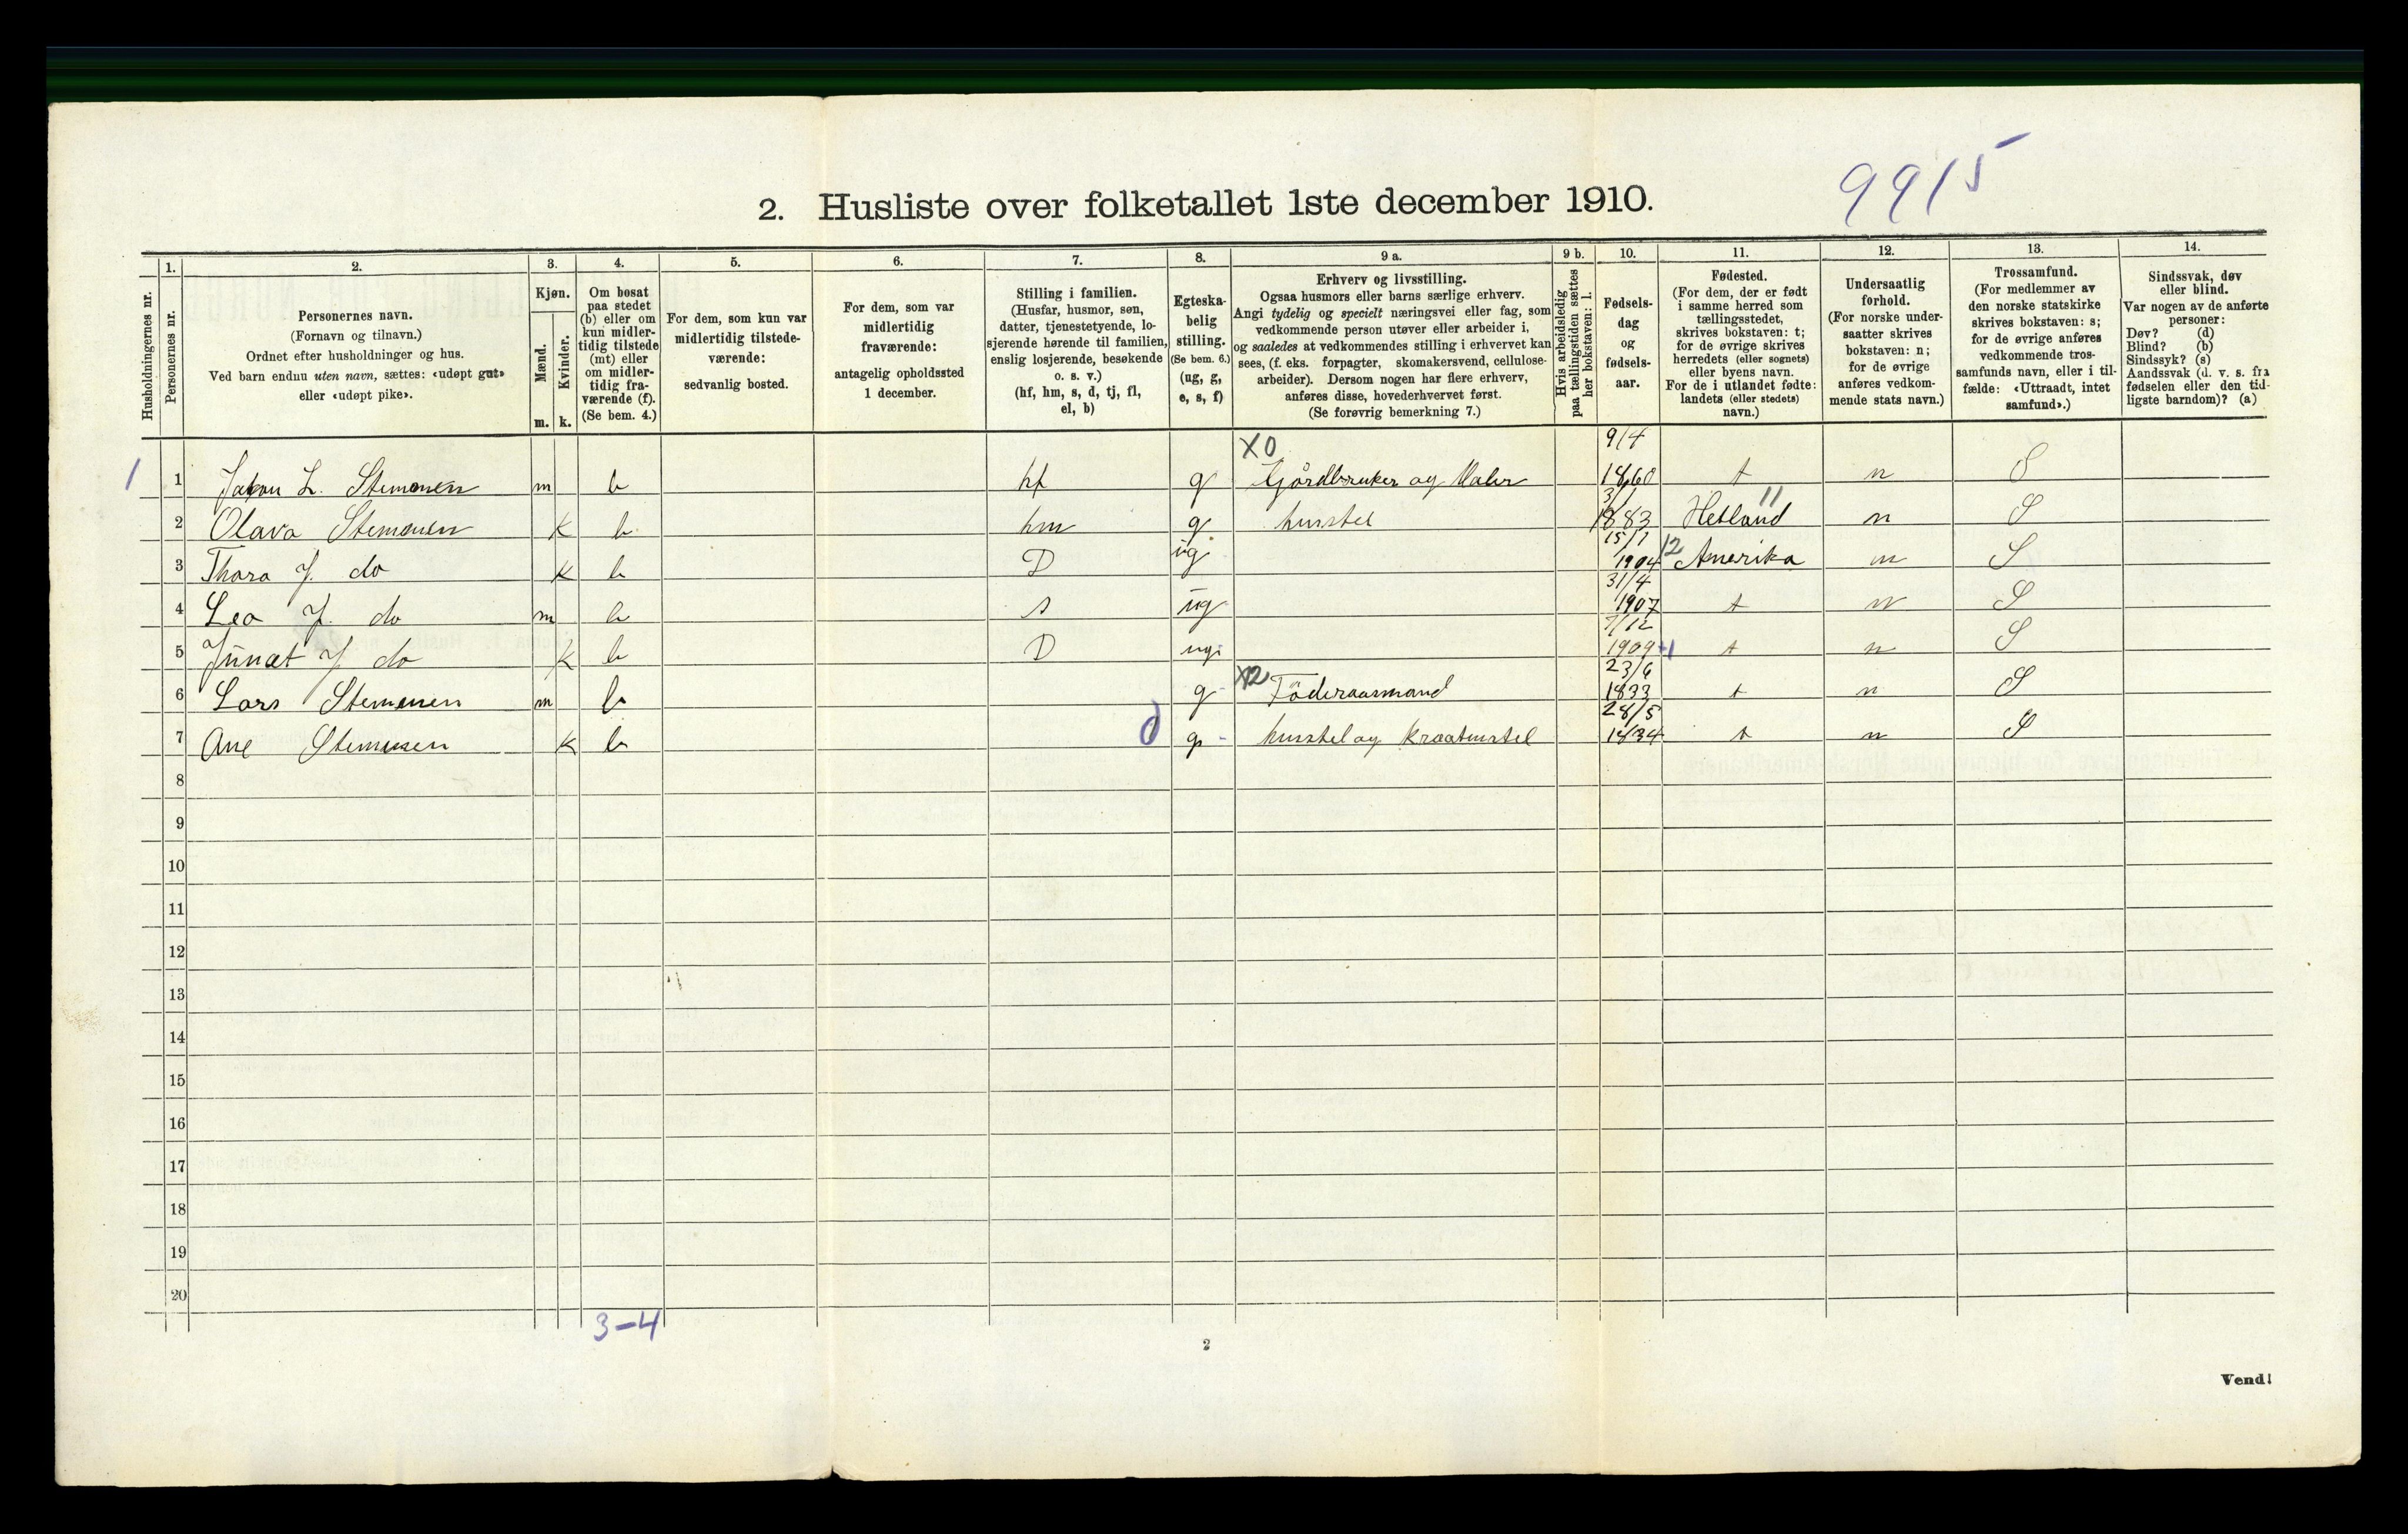 9915
2. Husliste over folketallet 1ste december 1910.
Husholdningernes nr.
1.
Personernes nr.
2.
Personernes navn.
(Fornavn og tilnavn.)
Ordnet efter husholdninger og hus.
Ved barn endnu uten navn, sættes: «udøpt gut»
eller «udøpt pike».
3.
Kjøn.
Mænd.
Kvinder.
m. k.
4.
Om bosat
paa stedet
(b) eller om
kun midler-
tidig tilstede
(mt) eller
om midler-
tidig fra-
værende (f).
(Se bem. 4.)
5.
For dem, som kun var
midlertidig tilstede-
værende:
sedvanlig bosted.
6.
For dem, som var
midlertidig
fraværende:
antagelig opholdssted
1 december.
7.
Stilling i familien.
(Husfar, husmor, søn,
datter, tjenestetyende, lo-
sjerende hørende til familien,
enslig losjerende, besøkende
o. s. v.)
(hf, hm, s, d, tj, fl,
el, b)
8.
Egteska-
belig
stilling.
(Se bem. 6.)
(ug, g,
e, s, f)
9 a.
Erhverv og livsstilling.
Ogsaa husmors eller barns særlige erhverv.
Angi tydelig og specielt næringsvei eller fag, som
vedkommende person utøver eller arbeider i,
og saaledes at vedkommendes stilling i erhvervet kan
sees, (f. eks. forpagter, skomakersvend, cellulose-
arbeider). Dersom nogen har flere erhverv,
anføres disse, hovederhvervet først.
(Se forøvrig bemerkning 7.)
9 b.
Hvis arbeidsledig
paa tællingstiden sættes
her bokstaven: l.
10.
Fødsels-
dag
og
fødsels-
aar.
11.
Fødested.
(For dem, der er født
i samme herred som
tællingsstedet,
skrives bokstaven: t;
for de øvrige skrives
herredets (eller sognets)
eller byens navn.
For de i utlandet fødte:
landets (eller stedets)
navn.)
12.
Undersaatlig
forhold.
(For norske under-
saatter skrives
bokstaven: n;
for de øvrige
anføres vedkom-
mende stats navn.)
13.
Trossamfund.
(For medlemmer av
den norske statskirke
skrives bokstaven: s;
for de øvrige anføres
vedkommende tros-
samfunds navn, eller i til-
fælde: «Uttraadt, intet
samfund».)
14.
Sindssvak, døv
eller blind.
Var nogen av de anførte
personer:
Døv? (d)
Blind? (b)
Sindssyk? (s)
Aandssvak (d. v. s. fra
fødselen eller den tid-
ligste barndom)? (a)
X0 9/4
1 1 L. Stemmen m b hf g Gjårdbruker og Maler 1860 t n S
3/1 11
2 Olava Stemmen k b hm g husstel 1883 Hetland n S
15/1
3 Thora J. do k b D ug 1904 12 Amerika n S
31/4
4 Leo J. do m b s ug 1907 t n S
7/12
5 J do k b D ug 1909 t n S
X2 23/6
6 Lars Stemmen m b g Föderaasmand 1833 t n S
28/5
7 Ane Stemmen k b d g husstel og kreaturstel 1834 t n S
8
9
10
11
12
13
14
15
16
17
18
19
20
3-4
2
Vend!